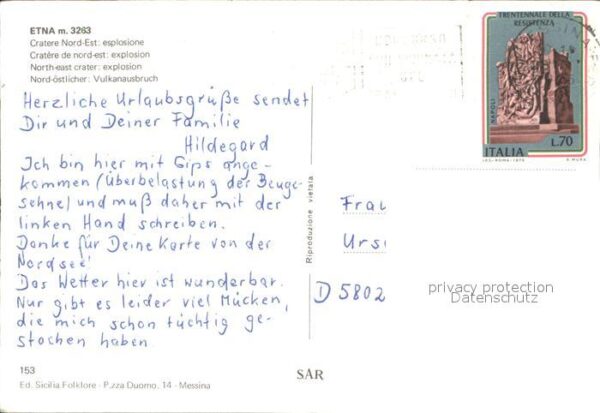 ETNA m. 3263
Cratere Nord-Est: esplosione
Cratère de nord-est: explosion
North-east crater: explosion
Nord-östlicher: Vulkanausbruch
Herzliche Urlaubsgrüße sendet
Dir und Deiner Familie
Hildegard
Ich bin hier mit Gips ange-
kommen (Überbelastung der Beuge-
sehne) und muß daher mit der
linken Hand schreiben.
Danke für Deine Karte von der
Nordsee!
Das Wetter hier ist wunderbar.
Nur gibt es leider viel Mücken,
die mich schon tüchtig ge-
stochen haben.
153
Ed. Sicilia Folklore - P.zza Duomo, 14 - Messina
Riproduzione vietata
SAR
TRENTENNALE DELLA
RESISTENZA
NAPOLI
L.70
ITALIA
Frau
Ursi
D 5802
privacy protection
Datenschutz